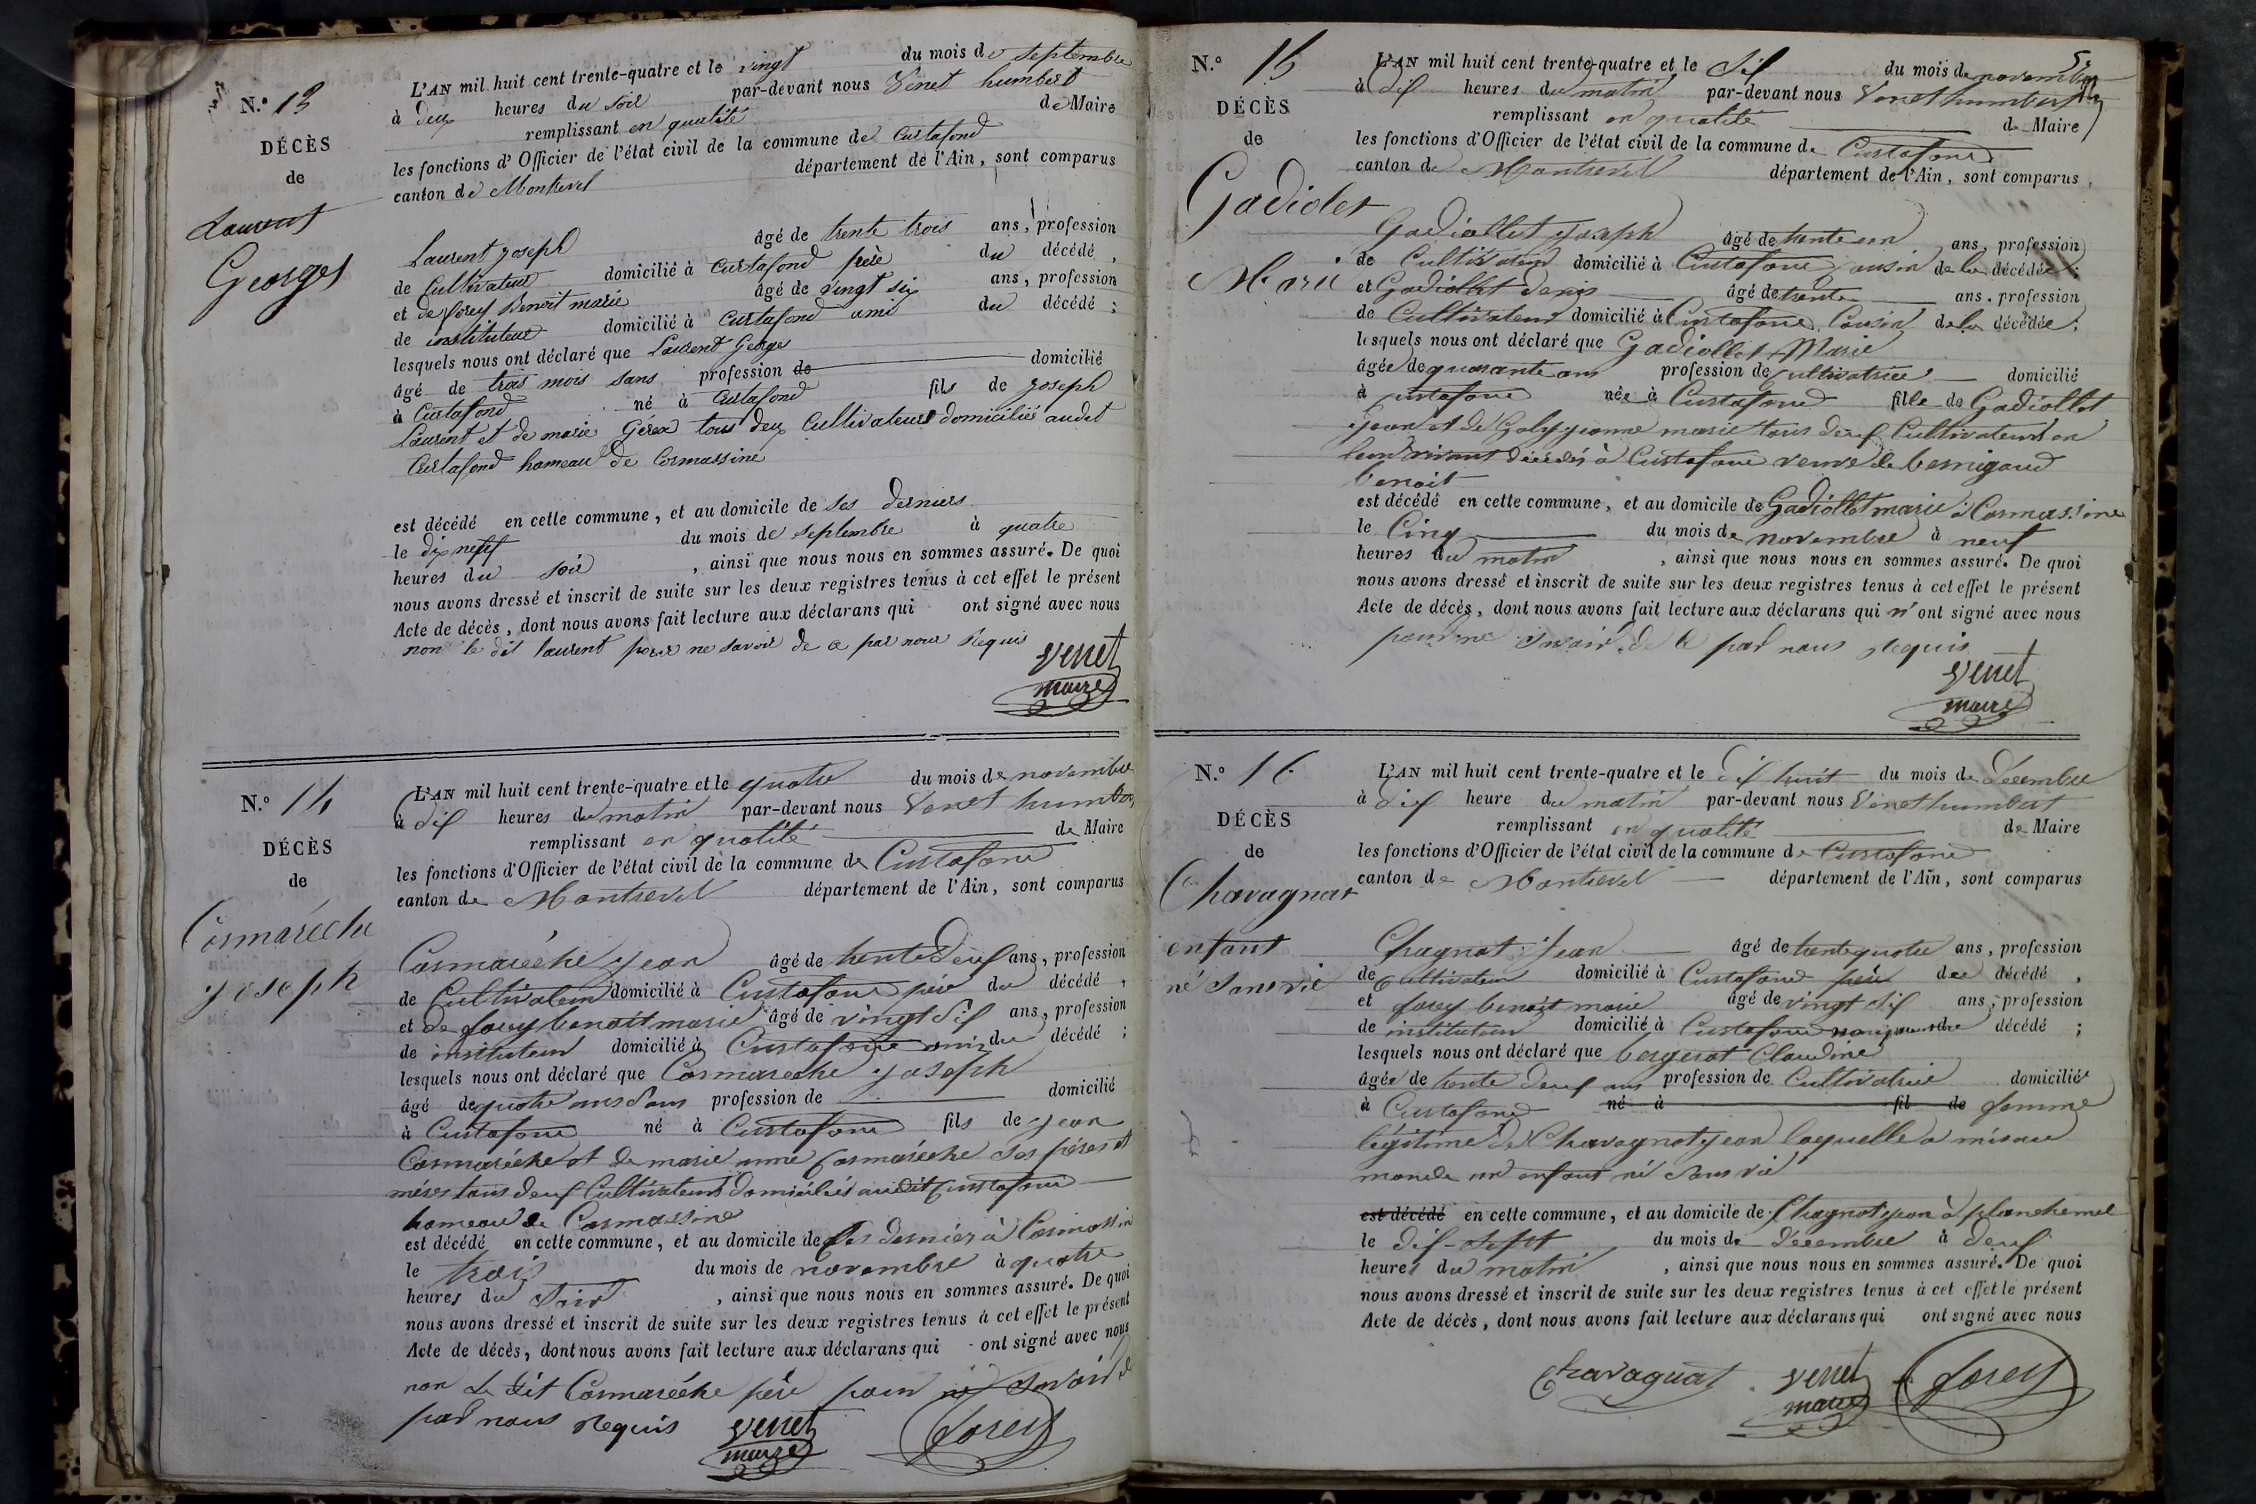 N.° 13
DÉCÈS
de
Laurent
Georges
L'AN mil huit cent trente-quatre et le vingt du mois de septembre
à deux heures du soir par-devant nous Venet humbert
remplissant en qualité de Maire
les fonctions d'Officier de l'état civil de la commune de Curtafond
canton de Montrevel département de l'Ain, sont comparus
Laurent joseph âgé de trente trois ans, profession
de Cultivateur domicilié à Curtafond père du décédé,
et de forey Benoit marie âgé de vingt six ans, profession
de instituteur domicilié à Curtafond ami du décédé ;
lesquels nous ont déclaré que Laurent Georges
âgé de trois mois sans profession de domicilié
à Curtafond né à Curtafond fils de joseph
Laurent et de marie Gerea tous deux Cultivateurs domicilié audit
Curtafond hameau de Cormassine
est décédé en cette commune, et au domicile de ses derniers
le dix neuf du mois de septembre à quatre
heures du soir, ainsi que nous nous en sommes assuré. De quoi
nous avons dressé et inscrit de suite sur les deux registres tenus à cet effet le présent
Acte de décès, dont nous avons fait lecture aux déclarans qui ont signé avec nous
non le dit laurent pour ne savoir de ce par nous Requis
Venet
maire
N.° 14
DÉCÈS
de
Cormaréche
joseph
L'AN mil huit cent trente-quatre et le quatre du mois de novembre
à dix heures du matin par-devant nous Venet humbert
remplissant en qualité de Maire
les fonctions d'Officier de l'état civil de la commune de Curtafond
canton de Montrevel département de l'Ain, sont comparus
Cormaréche jean âgé de trente deux ans, profession
de Cultivateur domicilié à Curtafond père du décédé,
et de forey benoit marie âgé de vingt six ans, profession
de instituteur domicilié à Curtafond ami du décédé ;
lesquels nous ont déclaré que Cormareche joseph
âgé de quatre ans sans profession de domicilié
à Curtafond né à Curtafond fils de jean
Cormaréche et de marie anne Cormaréche ses péres et
méres tous deux Cultivateurs domiciliés audit Curtafond
hameau de Cormassine
est décédé en cette commune, et au domicile de ses derniers à Cormassin
le trois du mois de novembre à quatre
heures du soir, ainsi que nous nous en sommes assuré. De quoi
nous avons dressé et inscrit de suite sur les deux registres tenus à cet effet le présent
Acte de décès, dont nous avons fait lecture aux déclarans qui ont signé avec nous
non le dit Cormaréche pére pour ne savoir de
par nous Requis
Venet
maire
forey
N.° 15
DÉCÈS
de
Gadiolet
Marie
L'AN mil huit cent trente-quatre et le six du mois de novembre
à dix heures du matin par-devant nous Venet humbert
remplissant en qualité de Maire
les fonctions d'Officier de l'état civil de la commune de Curtafond
canton de Montrevel département de l'Ain, sont comparus,
Gadiollet joseph âgé de trente un ans, profession
de Cultivateur domicilié à Curtafond cousin de la décédée ;
et Gadiollet denis âgé de trente ans, profession
de Cultivateur domicilié à Curtafond Cousin de la décédée ;
lesquels nous ont déclaré que Gadiollet Marie
âgée de quarante ans profession de Cultivatrice domicilié
à Curtafond née à Curtafond fille de Gadiollet
jean et de Goly jeanne marie tous deux Cultivateurs en
leur vivant décédés à Curtafond veuve de bernigaud
benoit
est décédé en cette commune, et au domicile de Gadiollet marie à Cormassine
le Cinq du mois de novembre à neuf
heures du matin, ainsi que nous nous en sommes assuré. De quoi
nous avons dressé et inscrit de suite sur les deux registres tenus à cet effet le présent
Acte de décès, dont nous avons fait lecture aux déclarans qui n'ont signé avec nous
pour ne savoir de ce par nous requis
Venet
maire
N.° 16
DÉCÈS
de
Chavagnat
enfant
né sans vie
L'AN mil huit cent trente-quatre et le dix huit du mois de décembre
à dix heure du matin par-devant nous Venet humbert
remplissant en qualité de Maire
les fonctions d'Officier de l'état civil de la commune de Curtafond
canton de Montrevel département de l'Ain, sont comparus
Chagnat jean âgé de trente quatre ans, profession
de Cultivateur domicilié à Curtafond père du décédé,
et forey benoit marie âgé de vingt six ans, profession
de instituteur domicilié à Curtafond décédé ;
lesquels nous ont déclaré que bergerat Claudine
âgée de trente deux ans profession de Cultivatrice domicilié
à Curtafond né à fil de femme
légitime de Chavagnat jean laquelle a mis au
monde un enfant né sans vie
est décédé en cette commune, et au domicile de Chagnat jean à planchemel
le dix-sept du mois de décembre à deux
heures du matin, ainsi que nous nous en sommes assuré. De quoi
nous avons dressé et inscrit de suite sur les deux registres tenus à cet effet le présent
Acte de décès, dont nous avons fait lecture aux déclarans qui ont signé avec nous
Chavagnat
Venet
maire
forey